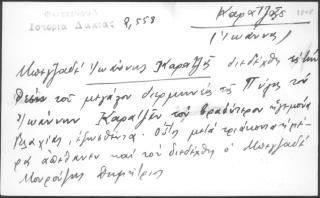 Φωτεινοῦ
Ἱστορία Δακίας
β, 558
Καρατζᾶς
(Ἰωάννης)
Μπεγζαδέ Ἰωάννης Καρατζᾶς διεδέχθη εἰς τὴν
θέσιν τοῦ μεγάλου διερμηνέως τῆς Πύλης τὸν
Ἰωάννην Καρατζᾶν τὸν βραδύτερον ἡγεμόνα
Βλαχίας, ἐξωσθέντα. Οὗτος μετὰ τριάκοντα ἡμέ-
ρας ἀπέθανεν καὶ τὸν διεδέχθη ὁ Μπεγζαδέ
Μουρούζης Δημήτριος